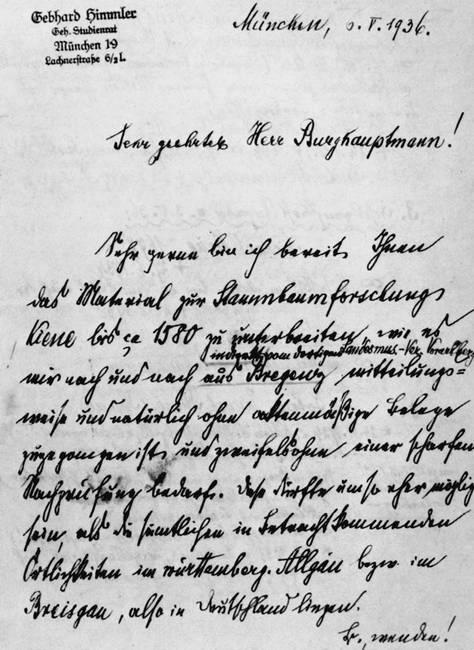 Gebhard Himmler
Geh. Studienrat
München 19
Lachnerstraße 6/2 I.
München, 6. V. 1936.
Sehr geehrter Herr Burghauptmann!
Sehr gerne bin ich bereit, Ihnen
das Material zur Stammbaumforschung
Kiene bis ca 1580 zu unterbreiten, wie es
vom dortigen Landesmus.-Ver. Vorarlberg
mir nach und nach aus Bregenz mitteilungs=
weise und natürlich ohne aktenmäßige Belege
zugegangen ist und zweifelsohne einer scharfen
Nachprüfung bedarf. Diese dürfte umso eher möglich
sein, als die sämtlichen in Betracht kommenden
Örtlichkeiten im württemberg. Allgäu bezw. im
Breisgau, also in Deutschland liegen.
B. wenden!